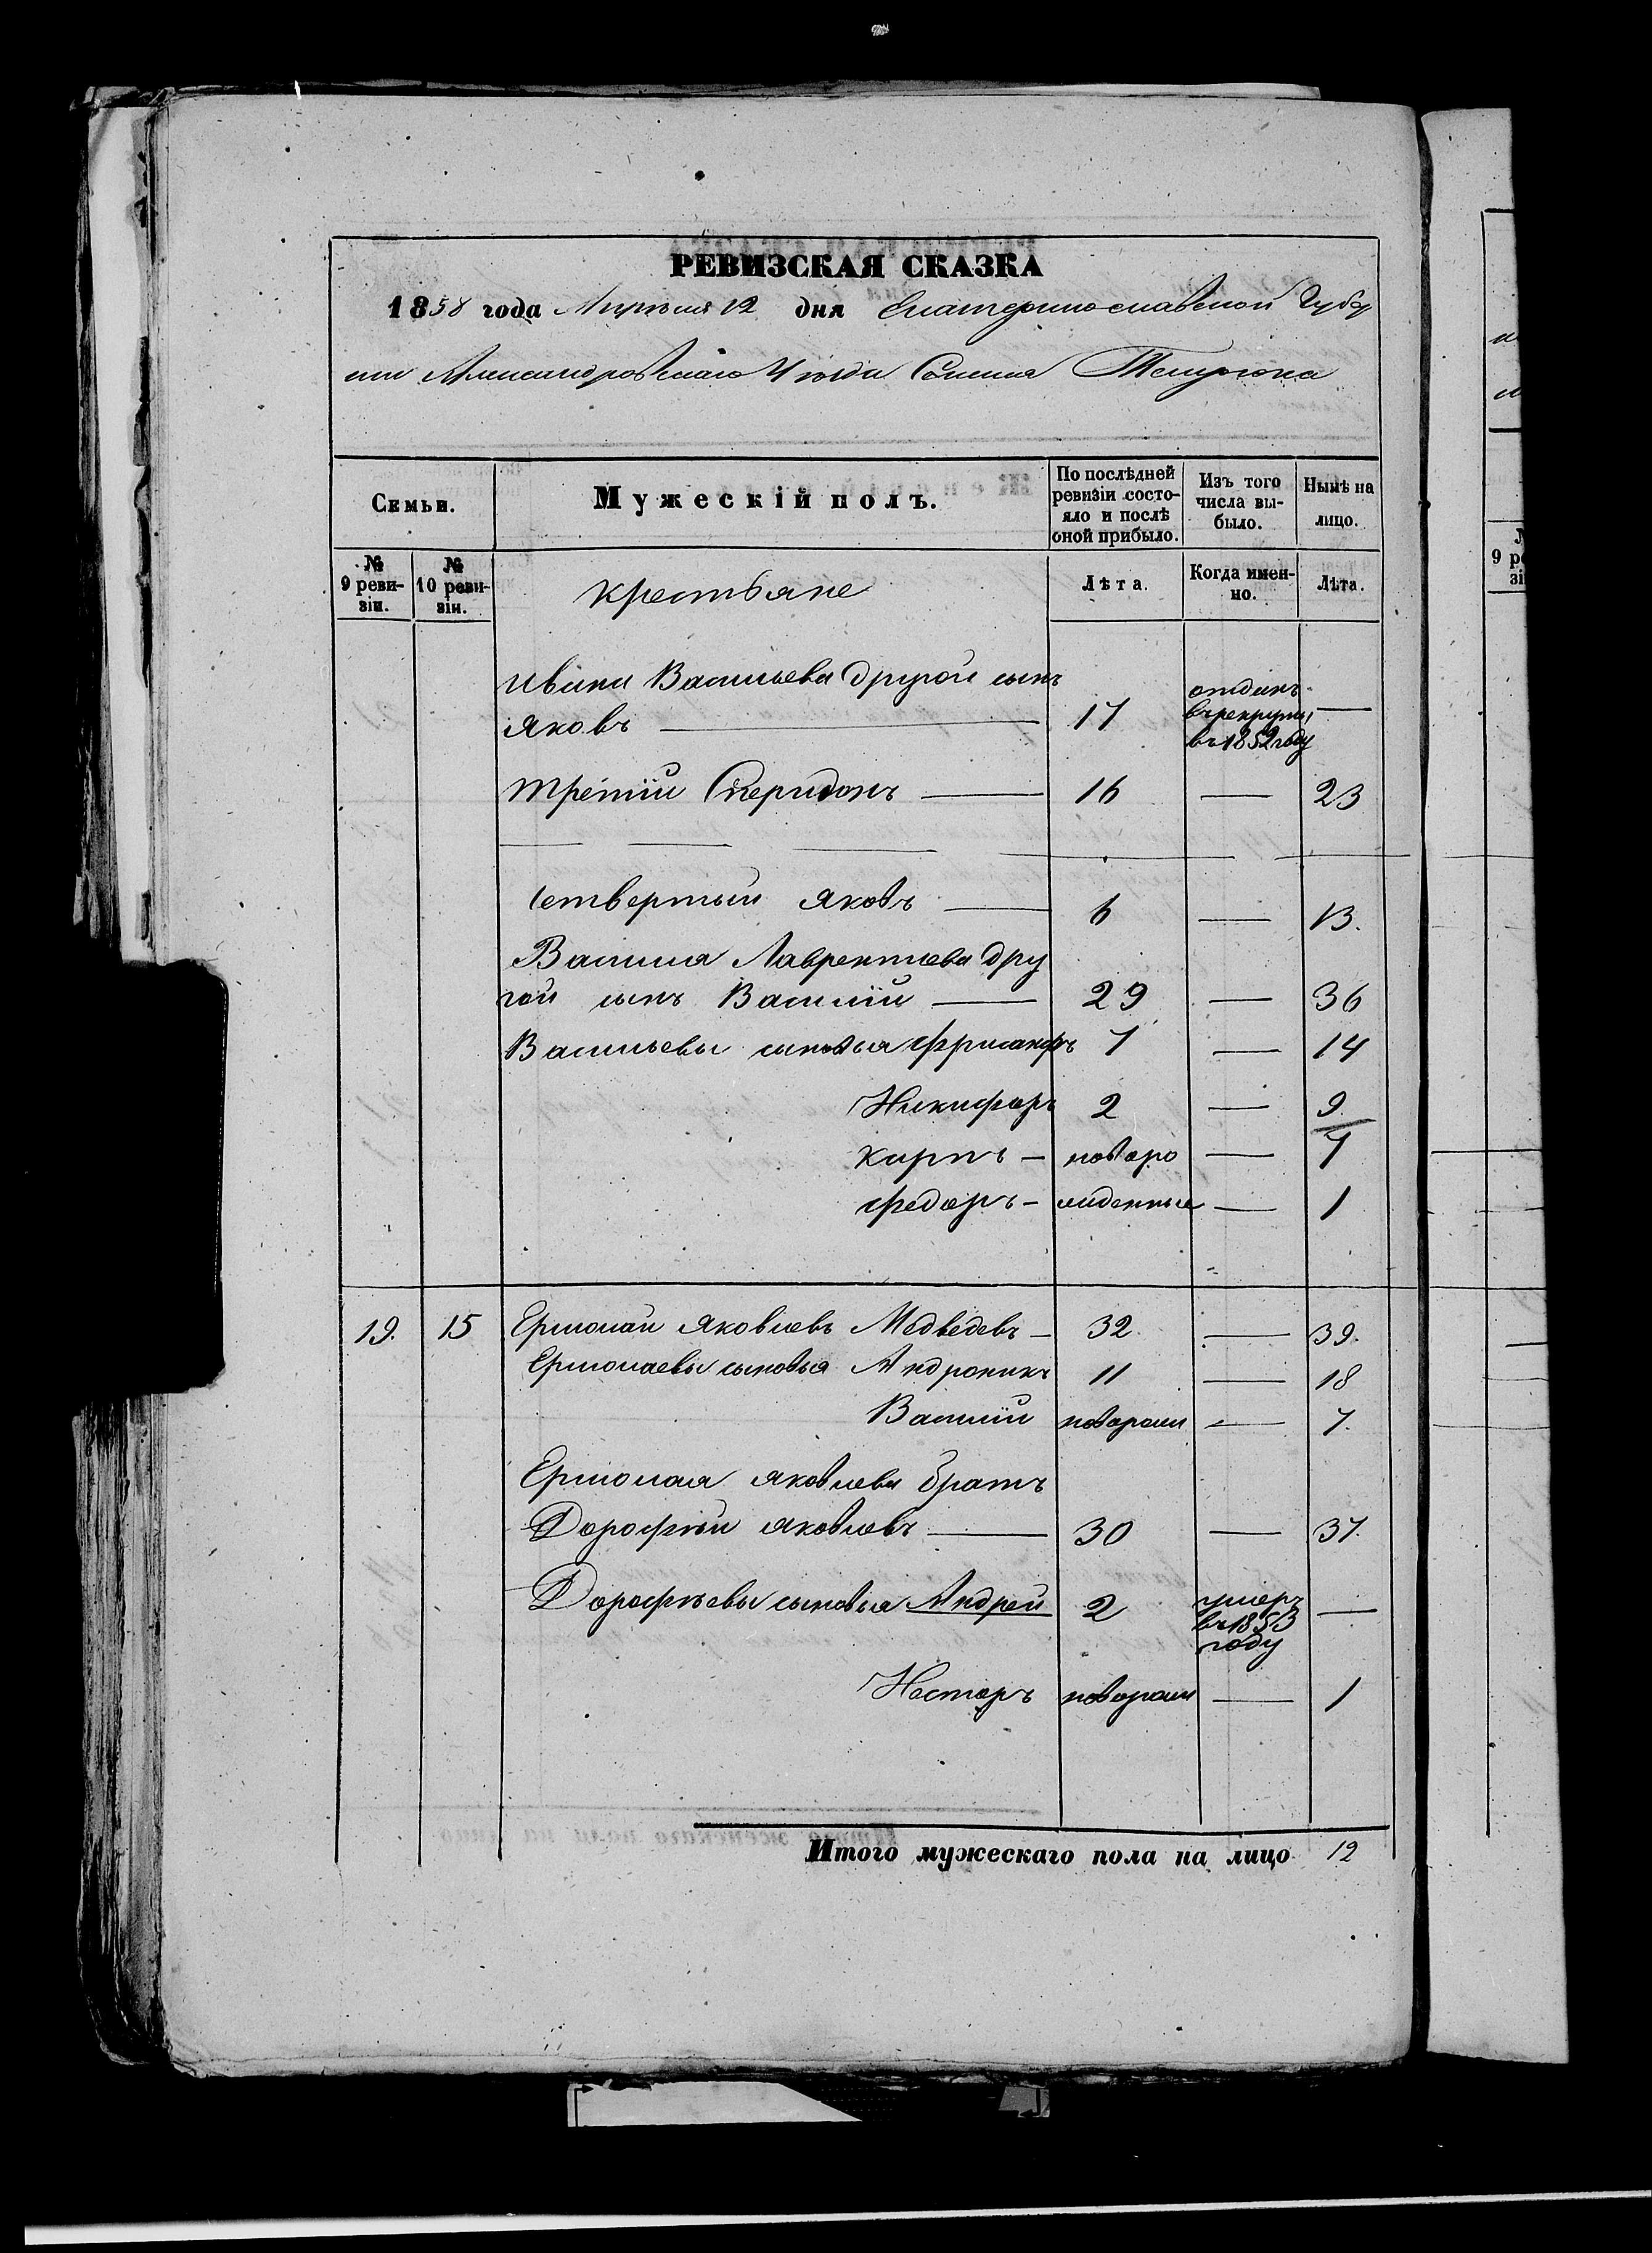 РЕВИЗСКАЯ СКАЗКА
1858 года Апреля 12 дня Екатеринославской Губер
нии Александровскаго Уезда Селения Темрюка
Семьи. Мужескій полъ. По послѣдней ревизіи состояло и послѣ оной прибыло. Изъ того числа выбыло. Нынѣ на лицо.
№ 9 ревизіи. № 10 ревизіи. крестьяне Лѣта. Когда именно. Лѣта.
Ивана Васильева другой сынъ
Яковъ 17 отданъ въ рекруты въ 1852 году —
третий Спиридонъ 16 — 23
Четвертый Яковъ 6 — 13.
Василия Лаврентиева дру
гой сынъ Василій 29 — 36
Васильевы сыновья 7 — 14
Никифоръ 2 — 9
Карпъ — новоро — 7
Федоръ — жденные — 1
19. 15 Ермолай Яковлевъ Медведевъ 32 — 39.
Ермолаевы сыновья Андроникъ 11 — 18
Василій новорожд — 7.
Ермолая Яковлева братъ
Дорофѣй Яковлевъ 30 — 37.
Дорофѣевы сыновья Андрей 2 умеръ въ 1853 году —
Несторъ новорожд — 1
Итого мужескаго пола на лицо 12